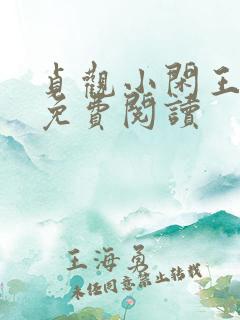 貞觀小閑王
免費閱讀
王海勇
未經同意禁止轉載